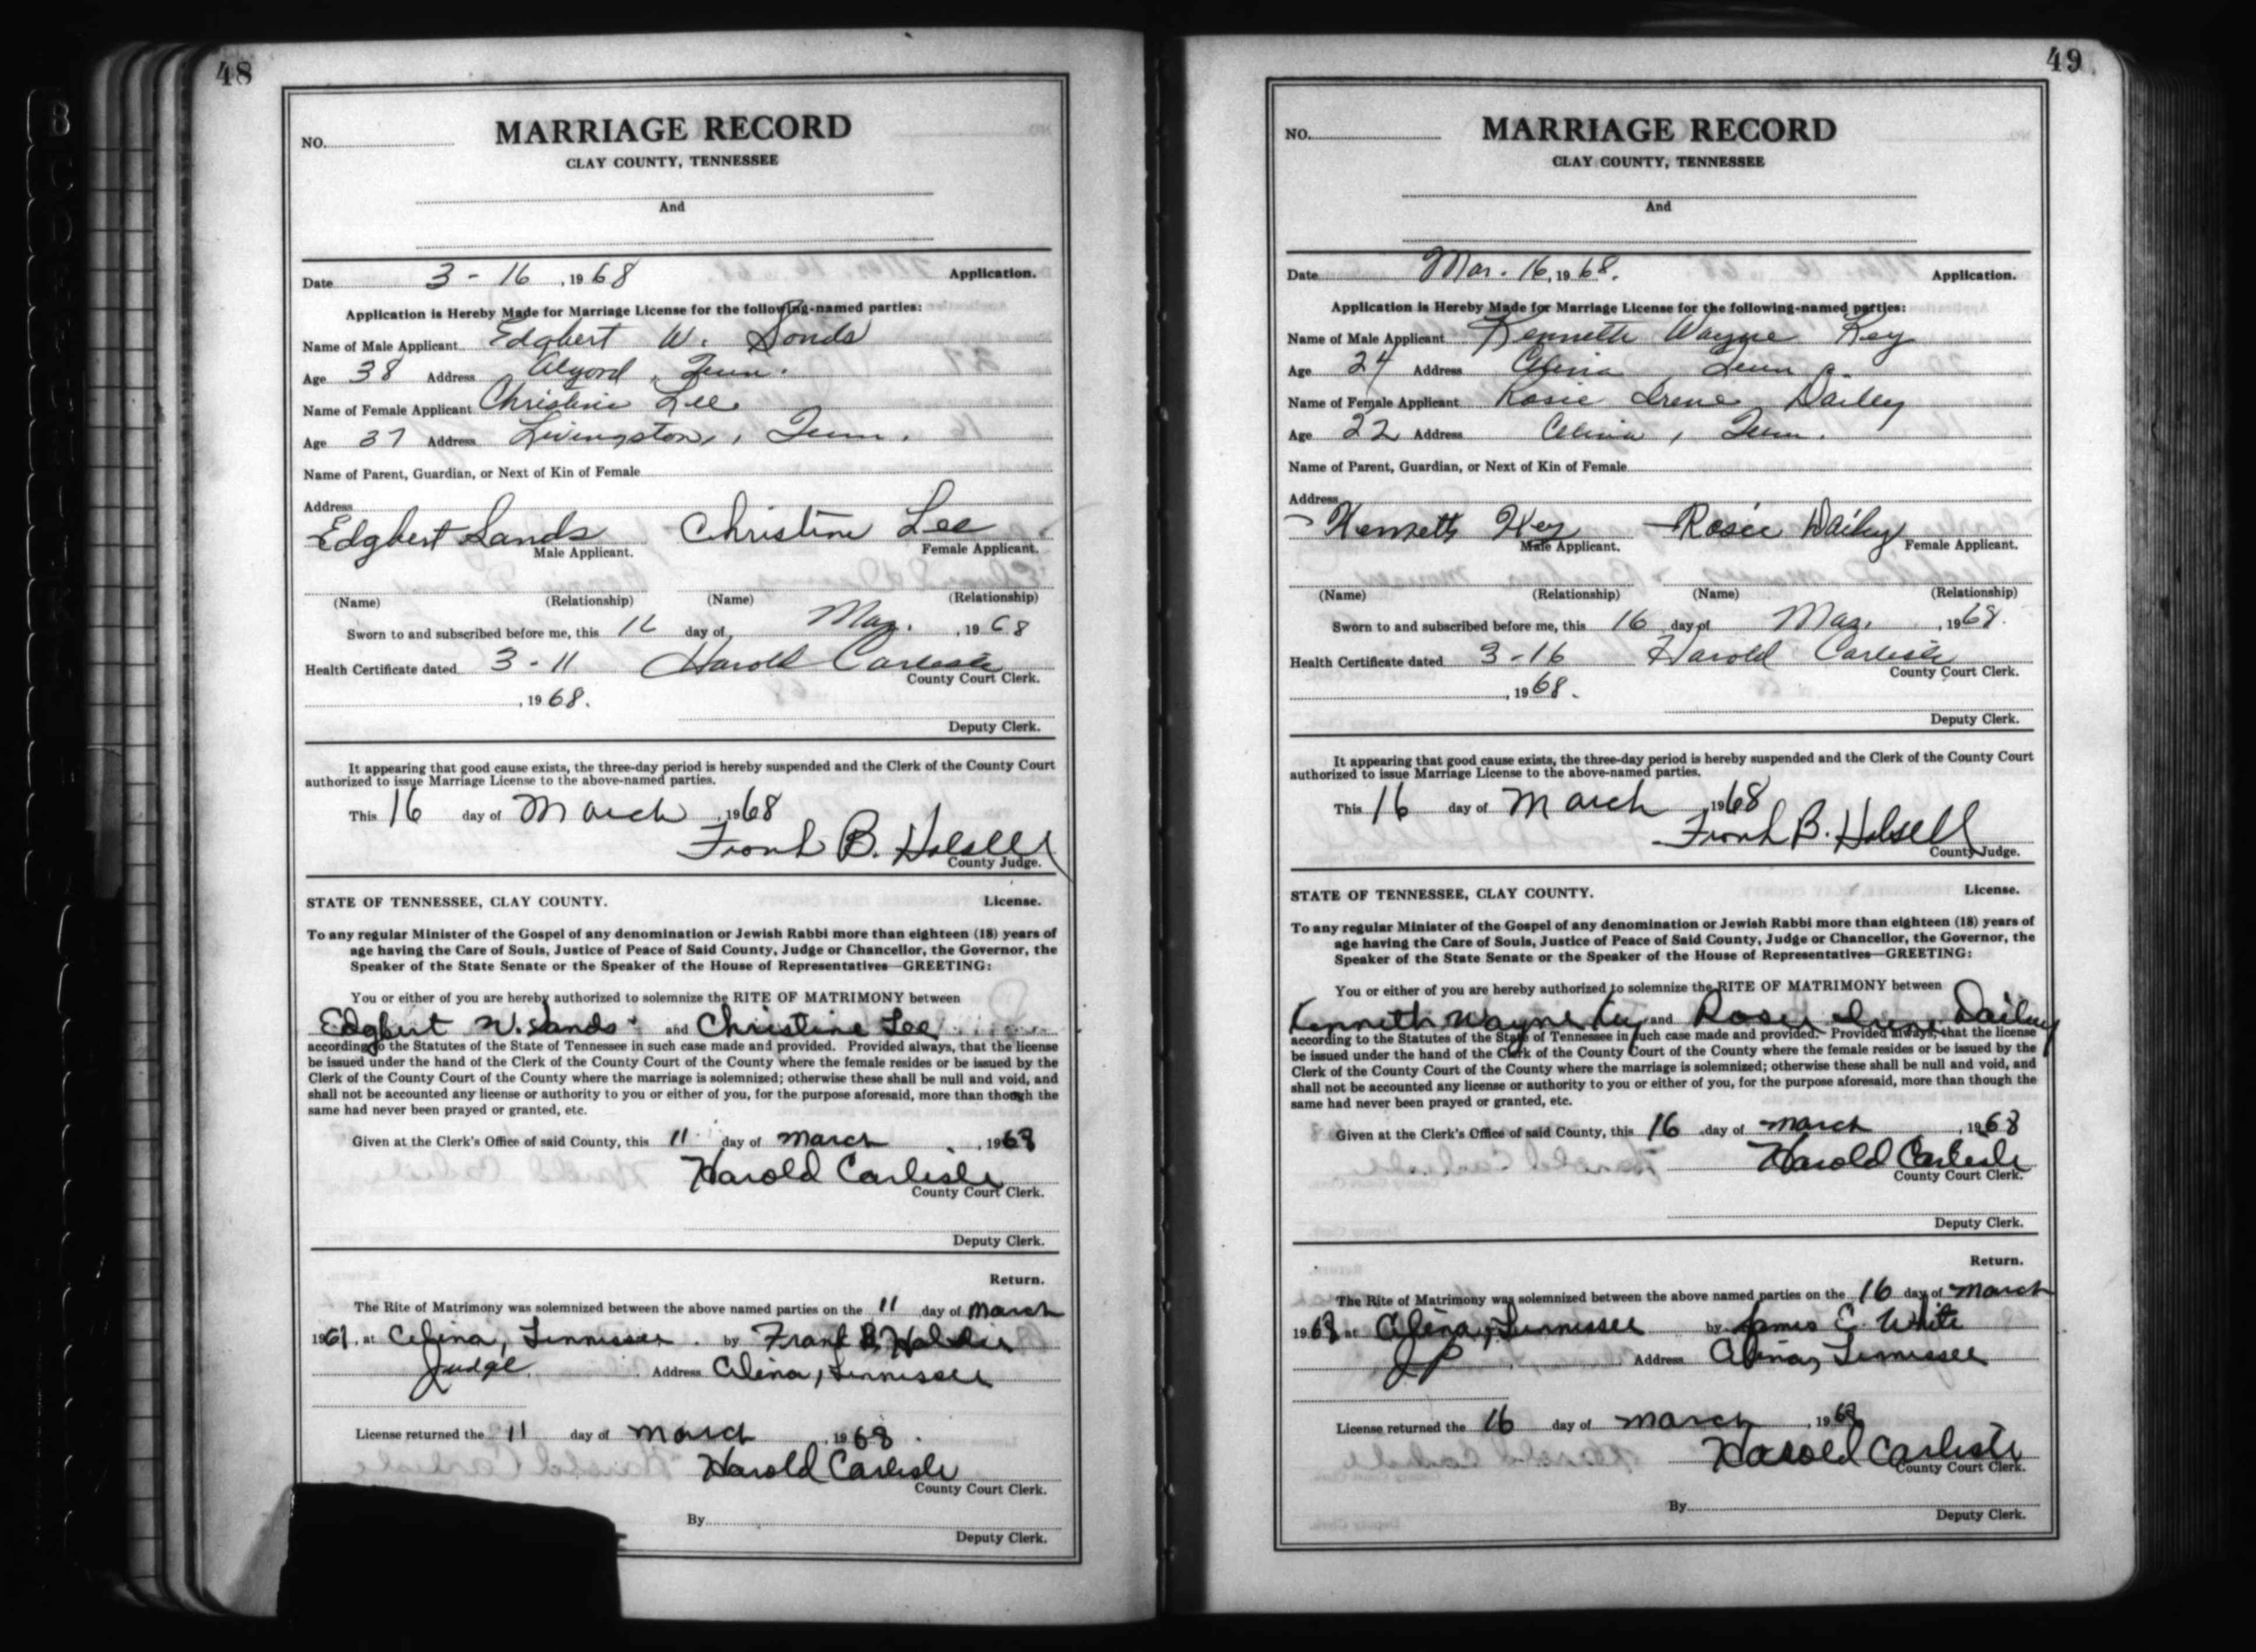 48
NO.
MARRIAGE RECORD
CLAY COUNTY, TENNESSEE
And
Date 3 - 16, 1968 Application.
Application is Hereby Made for Marriage License for the following-named parties:
Name of Male Applicant Edgbert W. Sands
Age 38 Address Tenn.
Name of Female Applicant Christine Lee
Age 37 Address Livingston, Tenn.
Name of Parent, Guardian, or Next of Kin of Female
Address
Edgbert Sands Christine Lee
Male Applicant. Female Applicant.
(Name) (Relationship) (Name) (Relationship)
Sworn to and subscribed before me, this day of Mar., 1968
Health Certificate dated 3 - 11 Harold Carlisle
County Court Clerk.
, 1968.
Deputy Clerk.
It appearing that good cause exists, the three-day period is hereby suspended and the Clerk of the County Court
authorized to issue Marriage License to the above-named parties.
This 16 day of March, 1968
Frank B. Halsell
County Judge.
STATE OF TENNESSEE, CLAY COUNTY. License.
To any regular Minister of the Gospel of any denomination or Jewish Rabbi more than eighteen (18) years of
age having the Care of Souls, Justice of Peace of Said County, Judge or Chancellor, the Governor, the
Speaker of the State Senate or the Speaker of the House of Representatives—GREETING:
You or either of you are hereby authorized to solemnize the RITE OF MATRIMONY between
Edgbert W. Sands and Christine Lee
according to the Statutes of the State of Tennessee in such case made and provided. Provided always, that the license
be issued under the hand of the Clerk of the County Court of the County where the female resides or be issued by the
Clerk of the County Court of the County where the marriage is solemnized; otherwise these shall be null and void, and
shall not be accounted any license or authority to you or either of you, for the purpose aforesaid, more than though the
same had never been prayed or granted, etc.
Given at the Clerk's Office of said County, this 11 day of March, 1968
Harold Carlisle
County Court Clerk.
Deputy Clerk.
Return.
The Rite of Matrimony was solemnized between the above named parties on the 11 day of March
19 at Celina, Tennessee by Frank B.
Judge Address Celina, Tennessee
License returned the 11 day of March, 1968.
Harold Carlisle
County Court Clerk.
By
Deputy Clerk.
49
NO.
MARRIAGE RECORD
CLAY COUNTY, TENNESSEE
And
Date Mar. 16, 1968. Application.
Application is Hereby Made for Marriage License for the following-named parties:
Name of Male Applicant Kenneth Wayne Key
Age 24 Address Celina Tenn.
Name of Female Applicant Rosie Irene Dailey
Age 22 Address Celina, Tenn.
Name of Parent, Guardian, or Next of Kin of Female
Address
Kenneth Key Rosie Dailey
Male Applicant. Female Applicant.
(Name) (Relationship) (Name) (Relationship)
Sworn to and subscribed before me, this 16 day of Mar., 1968.
Health Certificate dated 3 - 16 Harold Carlisle
County Court Clerk.
, 1968.
Deputy Clerk.
It appearing that good cause exists, the three-day period is hereby suspended and the Clerk of the County Court
authorized to issue Marriage License to the above-named parties.
This 16 day of March, 1968
Frank B. Halsell
County Judge.
STATE OF TENNESSEE, CLAY COUNTY. License.
To any regular Minister of the Gospel of any denomination or Jewish Rabbi more than eighteen (18) years of
age having the Care of Souls, Justice of Peace of Said County, Judge or Chancellor, the Governor, the
Speaker of the State Senate or the Speaker of the House of Representatives—GREETING:
You or either of you are hereby authorized to solemnize the RITE OF MATRIMONY between
Kenneth Wayne Key and Rosie Irene Dailey
according to the Statutes of the State of Tennessee in such case made and provided. Provided always, that the license
be issued under the hand of the Clerk of the County Court of the County where the female resides or be issued by the
Clerk of the County Court of the County where the marriage is solemnized; otherwise these shall be null and void, and
shall not be accounted any license or authority to you or either of you, for the purpose aforesaid, more than though the
same had never been prayed or granted, etc.
Given at the Clerk's Office of said County, this 16 day of March, 1968
Harold Carlisle
County Court Clerk.
Deputy Clerk.
Return.
The Rite of Matrimony was solemnized between the above named parties on the 16 day of March
1968 at Celina, Tennessee by James E. White
JP Address Celina, Tennessee
License returned the 16 day of March, 1968
Harold Carlisle
County Court Clerk.
By
Deputy Clerk.